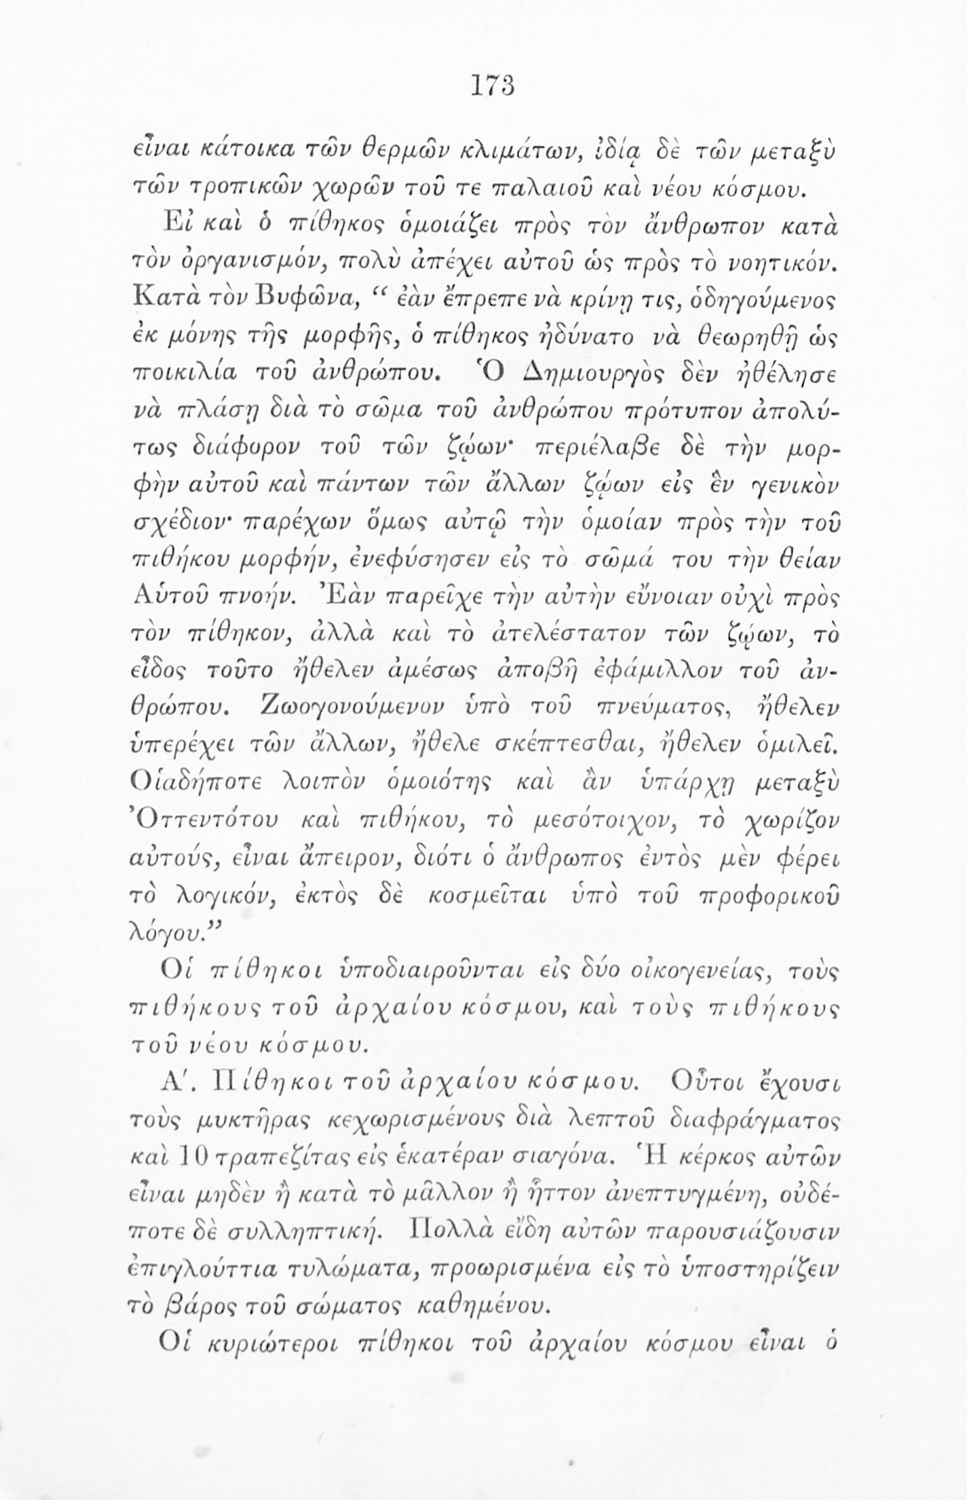 173
εἶναι κάτοικα τῶν θερμῶν κλιμάτων, ἰδίᾳ δὲ τῶν μεταξὺ
τῶν τροπικῶν χωρῶν τοῦ τε παλαιοῦ καὶ νέου κόσμου.
Εἰ καὶ ὁ πίθηκος ὁμοιάζει πρὸς τὸν ἄνθρωπον κατὰ
τὸν ὀργανισμόν, πολὺ ἀπέχει αὐτοῦ ὡς πρὸς τὸ νοητικόν.
Κατὰ τὸν Βυφῶνα, “ ἐὰν ἔπρεπε νὰ κρίνῃ τις, ὁδηγούμενος
ἐκ μόνης τῆς μορφῆς, ὁ πίθηκος ἠδύνατο νὰ θεωρηθῇ ὡς
ποικιλία τοῦ ἀνθρώπου. Ὁ Δημιουργὸς δὲν ἠθέλησε
νὰ πλάσῃ διὰ τὸ σῶμα τοῦ ἀνθρώπου πρότυπον ἀπολύ-
τως διάφορον τοῦ τῶν ζῴων· περιέλαβε δὲ τὴν μορ-
φὴν αὐτοῦ καὶ πάντων τῶν ἄλλων ζῴων εἰς ἓν γενικὸν
σχέδιον· παρέχων ὅμως αὐτῷ τὴν ὁμοίαν πρὸς τὴν τοῦ
πιθήκου μορφήν, ἐνεφύσησεν εἰς τὸ σῶμά του τὴν θείαν
Αὑτοῦ πνοήν. Ἐὰν παρεῖχε τὴν αὐτὴν εὔνοιαν οὐχὶ πρὸς
τὸν πίθηκον, ἀλλὰ καὶ τὸ ἀτελέστατον τῶν ζῴων, τὸ
εἶδος τοῦτο ἤθελεν ἀμέσως ἀποβῆ ἐφάμιλλον τοῦ ἀν-
θρώπου. Ζωογονούμενον ὑπὸ τοῦ πνεύματος, ἤθελεν
ὑπερέχει τῶν ἄλλων, ἤθελε σκέπτεσθαι, ἤθελεν ὁμιλεῖ.
Οἱαδήποτε λοιπὸν ὁμοιότης καὶ ἂν ὑπάρχῃ μεταξὺ
Ὀττεντότου καὶ πιθήκου, τὸ μεσότοιχον, τὸ χωρίζον
αὐτούς, εἶναι ἄπειρον, διότι ὁ ἄνθρωπος ἐντὸς μὲν φέρει
τὸ λογικόν, ἐκτὸς δὲ κοσμεῖται ὑπὸ τοῦ προφορικοῦ
λόγου.”
Οἱ πίθηκοι ὑποδιαιροῦνται εἰς δύο οἰκογενείας, τοὺς
πιθήκους τοῦ ἀρχαίου κόσμου, καὶ τοὺς πιθήκους
τοῦ νέου κόσμου.
Αʹ. Πίθηκοι τοῦ ἀρχαίου κόσμου. Οὗτοι ἔχουσι
τοὺς μυκτῆρας κεχωρισμένους διὰ λεπτοῦ διαφράγματος
καὶ 10 τραπεζίτας εἰς ἑκατέραν σιαγόνα. Ἡ κέρκος αὐτῶν
εἶναι μηδὲν ἢ κατὰ τὸ μᾶλλον ἢ ἧττον ἀνεπτυγμένη, οὐδέ-
ποτε δὲ συλληπτική. Πολλὰ εἴδη αὐτῶν παρουσιάζουσιν
ἐπιγλούττια τυλώματα, προωρισμένα εἰς τὸ ὑποστηρίζειν
τὸ βάρος τοῦ σώματος καθημένου.
Οἱ κυριώτεροι πίθηκοι τοῦ ἀρχαίου κόσμου εἶναι ὁ